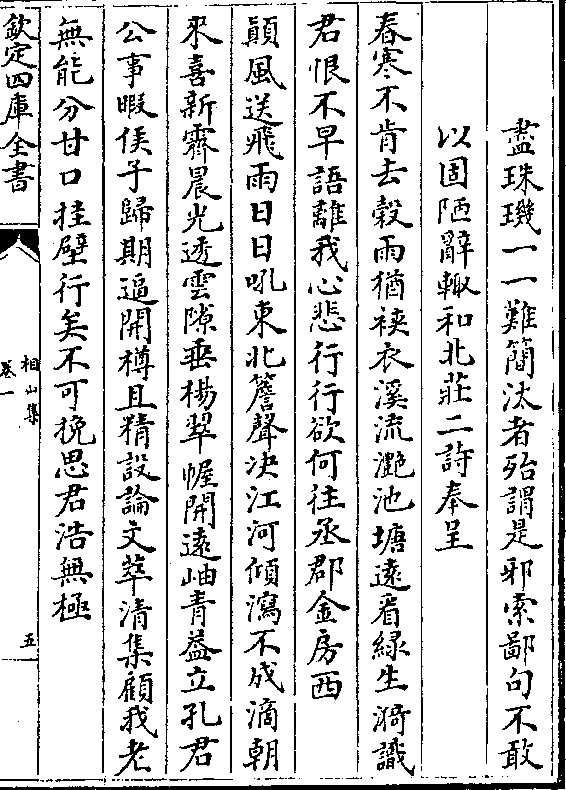 盡珠璣一一難簡汰者殆謂是邪索鄙句不敢
以固陋辭輙和北莊二詩奉呈
春寒不肯去榖雨猶裌衣溪流灔池塘逺看緑生漪識
君恨不早語離我心悲行行欲何往丞郡金房西
顛風送飛雨日日吼東北簷聲决江河傾瀉不成滴朝
來喜新霽晨光透雲隙垂楊翠幄開逺岫青益立孔君
公事暇侯子歸期逼開樽且精設論文萃清集顧我老
無能分甘口挂壁行矣不可挽思君浩無極
欽定四庫全書
相山集
卷一
五